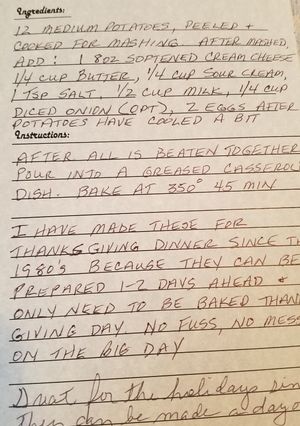 Ingredients:
12 MEDIUM POTATOES, PEELED +
COOKED FOR MASHING. AFTER MASHED,
ADD: 1 8OZ SOFTENED CREAM CHEESE
1/4 CUP BUTTER, 1/4 CUP SOUR CREAM,
1 TSP SALT, 1/2 CUP MILK, 1/4 CUP
DICED ONION (OPT), 2 EGGS AFTER
POTATOES HAVE COOLED A BIT
Instructions:
AFTER ALL IS BEATEN TOGETHER
POUR INTO A GREASED CASSEROL
DISH. BAKE AT 350° 45 MIN
I HAVE MADE THESE FOR
THANKSGIVING DINNER SINCE TH
1980'S BECAUSE THEY CAN BE
PREPARED 1-2 DAYS AHEAD &
ONLY NEED TO BE BAKED THAN
GIVING DAY. NO FUSS, NO MESS
ON THE BIG DAY
for the holidays
can be made a day